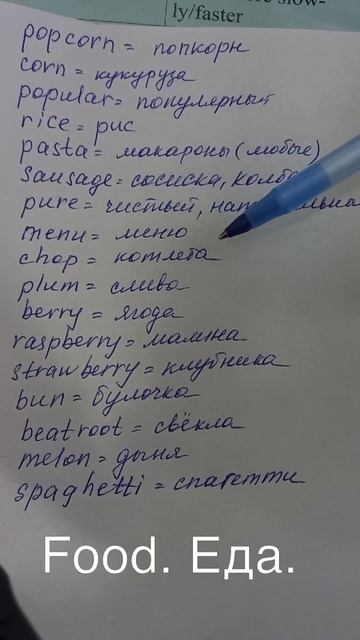 ly/faster
popcorn = попкорн
corn = кукуруза
popular = популярный
rice = рис
pasta = макароны (любые)
sausage = сосиска,
pure = чистый,
menu = меню
chop = котлета
plum = слива
berry = ягода
raspberry = малина
strawberry = клубника
bun = булочка
beatroot = свёкла
melon = дыня
spaghetti = спагетти
Food. Еда.